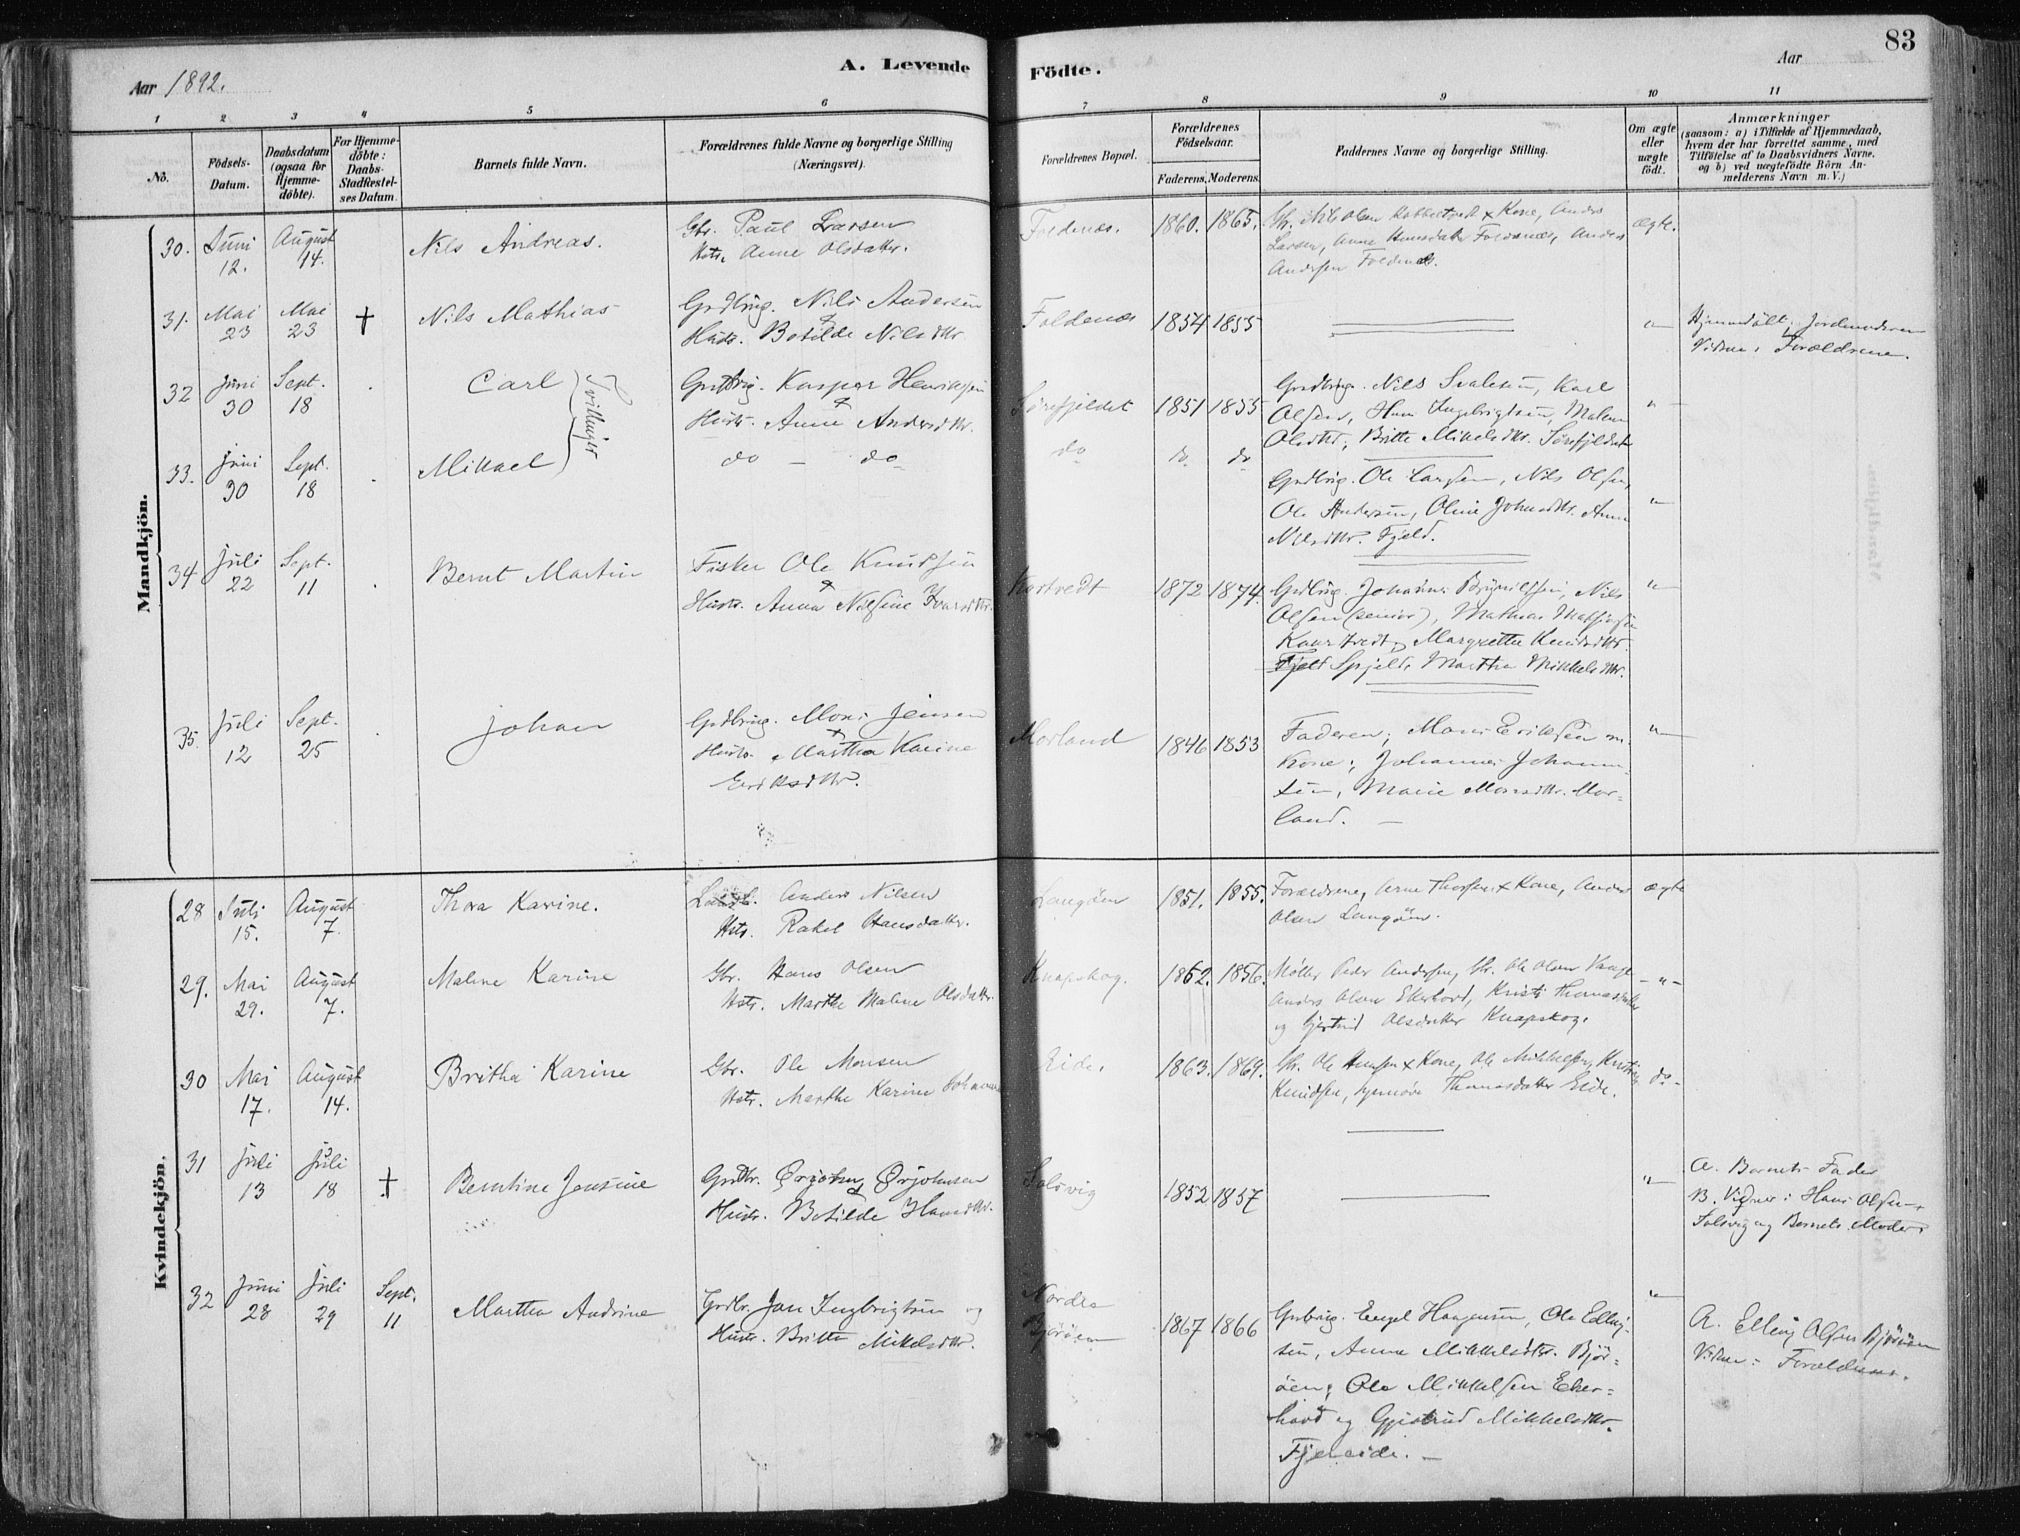 83
A. Levende
Födte.
Aar 1892.
Aar
1 2 3 4 5 6 7 8 9 10 11
No.
Födsels-Datum.
Daabsdatum (ogsaa for Hjemme-døbte).
For Hjemme-døbte: Daabs-Stadfestel-ses Datum.
Barnets fulde Navn.
Forældrenes fulde Navne og borgerlige Stilling (Næringsvei).
Forældrenes Bopæl.
Forældrenes Födselsaar.
Faderens. Moderens.
Faddernes Navne og borgerlige Stilling.
Om ægte eller uægte födt.
Anmærkninger
(saasom: a) i Tilfælde af Hjemmedaab, hvem der har forrettet samme, med Tilføielse af to Daabsvidners Navne, og b) ved uægtefödte Börn An-melderens Navn m. V.)
Mandkjön.
30. Juni 12. August 14. Nils Andreas.
Gbr. Paul Larsen
Hstr. Anne Olsdatter.
Foldenæs. 1860. 1865.
Kone, Anders
Larsen, Anne Hansdatter Foldenæs, Anders
Andersen Foldenæs.
ægte.
31. Mai 23 Mai 23 † Nils Mathias
Grdbrug. Nils Andersen
&
Hustr. Botilde Nilsdtr.
Foldenæs 1854 1855
"
Hjemmedøbt; Jordmoderen
Vidner: Forældrene.
32 Juni 30 Sept. 18 Carl
Tvillinger
Grdbrug. Kasper Henriksen
&
Hustr. Anne Andersdtr.
Sørefjeldet 1851 1855
Grdbrug. Nils Karl
Olsen, Hans Ingebrigtsen, Malene
Olsdtr, Britte Mikelsdtr. Sørefjeldet
"
33. Juni 30 Sept. 18 Mikael
do - do
do do do
Grdbrug. Ole Larsen, Nils Olsen,
Ole Andersen, Oline Johnsdtr. Anna
Nilsdtr. Fjeld.
"
34 Juli 22 Sept. 11 Bernt Martin
Fisker Ole Knudsen
&
Hustr. Anna Nilsine Ivarsdtr.
1872 1874.
Grdbrug. Johannes Brynildsen, Nils
Olsen (senior), Mathias
Margrethe Knudsdtr.
Fjeld Spjeld, Martha Mikkelsdtr.
"
35. Juli 12 Sept. 25 Johan
Grdbrug. Mons Jensen
&
Hustr. Martha Karine
Eriksdtr.
Morland 1846 1853
Faderen; Mons Eriksen m.
Kone; Johannes Johann-
sen, Marie Monsdtr. Mor-
land.
"
Kvindekjön.
28 Juli 15. August 7. Thora Karine.
Anders Nilsen
Hstr. Rakel Hansdatter.
Langøen 1851. 1855.
Forældrene, Arne Thorsen & Kone, Anders
Olsen Langøen.
ægte
29. Mai 29. August 7. Malene Karine
Gbr. Hans Olsen
Hstr. Marthe Malene Olsdatter.
Knapskog. 1862. 1856.
Møller Peder Andersen, Gbr. Ole Olsen
Anders Olsen Ekerhovd, Kristi Thomasdatter
og Gjertrud Olsdatter Knapskog.
- " -
30 Mai 17. August 14. Britha Karine
Gbr. Ole Monsen
Hstr. Marthe Karine
Eide. 1863. 1869.
Gbr. Ole Hansen & Kone, Ole Mikkelsen,
Knudsen, Synnøve Thomasdatter Eide.
do-
31 Juli 13 Juli 18 † Berntine Jensine
Grdbr. Ørjohn Ørjohnsen
&
Hustr. Botilde Hansdtr.
Solsvig 1852 1857
"
A. Barnets Fader
B. Vidner: Hans Olsen
Solsvig og Barnets Moder.
32 Juni 28 Juli 29 Sept. 11 Martha Andrine
Grdbr. Jan Ingbrigtsen og
Hustr. Britte Mikelsdtr.
Nordre
Bjorøen 1867 1866
Grdbrug. Engel Haagensen, Ole Elling-
sen, Anna Mikkelsdtr. Bjor-
øen, Ole Mikkelsen Eker-
hovd og Gjertrud Mikkelsdtr.
Fjereide.
"
A. Elling Olsen Bjorøen
Vidner: Forældrene.